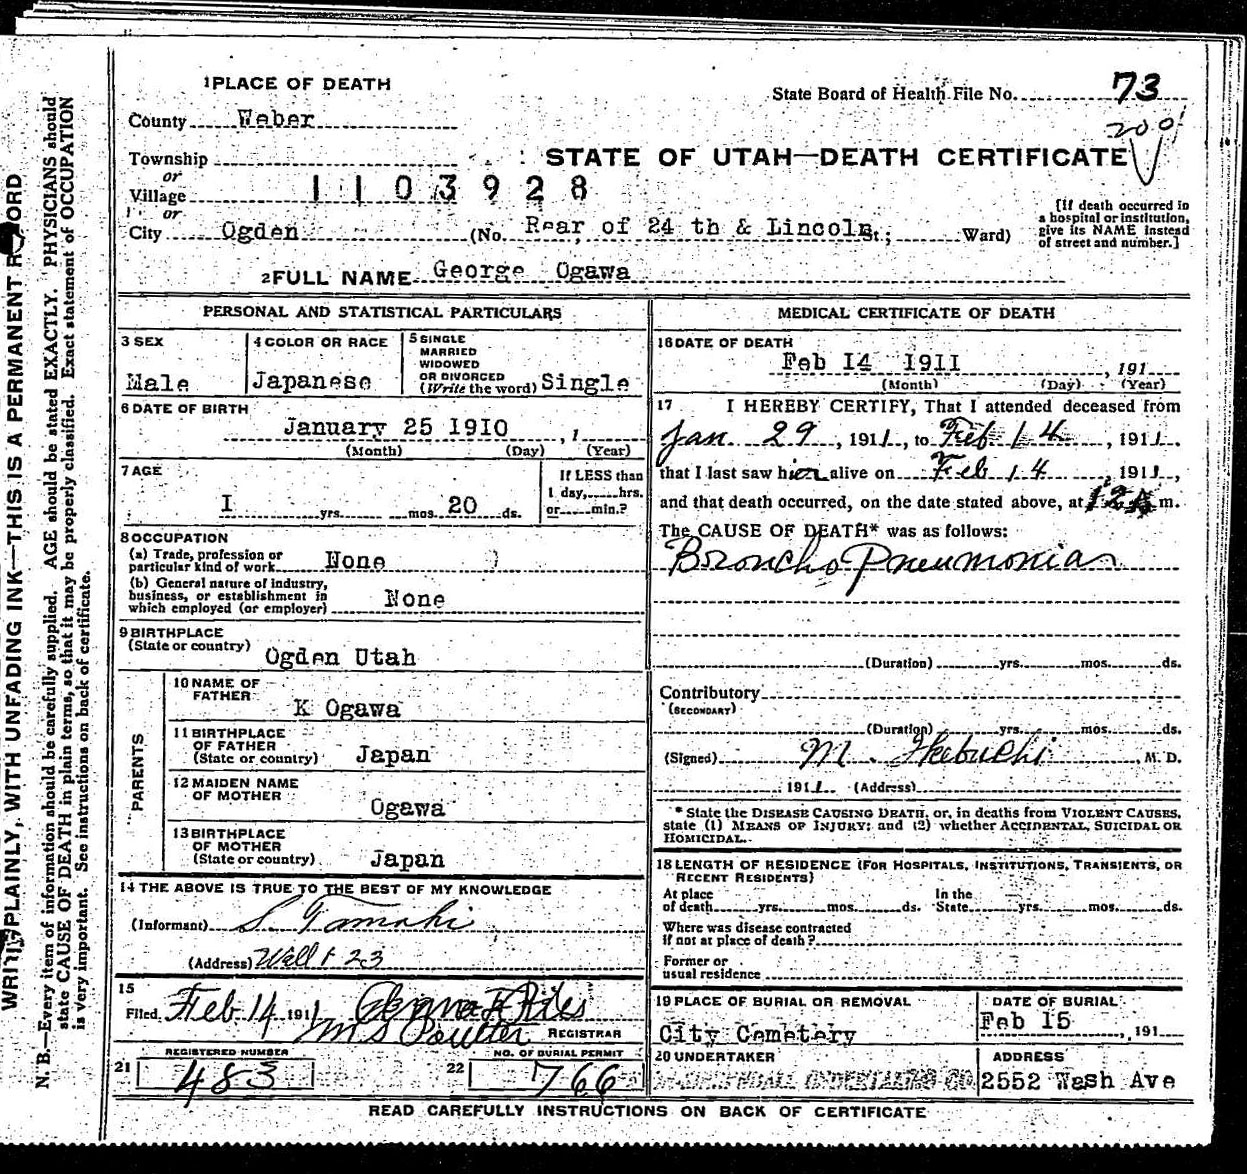 1 PLACE OF DEATH
State Board of Health File No. 73
200
County Weber
Township
or
Village
1103928
STATE OF UTAH—DEATH CERTIFICATE
or
City Ogden (No. Rear of 24 th & Lincoln St.; Ward)
[If death occurred in
a hospital or institution,
give its NAME instead
of street and number.]
2 FULL NAME George Ogawa
PERSONAL AND STATISTICAL PARTICULARS
3 SEX
Male
4 COLOR OR RACE
Japanese
5 SINGLE
MARRIED
WIDOWED
OR DIVORCED
(Write the word) Single
6 DATE OF BIRTH
January 25 1910 , 1
(Month) (Day) (Year)
7 AGE
I yrs. mos. 20 ds.
If LESS than
1 day, hrs.
or min.?
8 OCCUPATION
(a) Trade, profession or
particular kind of work None
(b) General nature of industry,
business, or establishment in
which employed (or employer) None
9 BIRTHPLACE
(State or country) Ogden Utah
PARENTS
10 NAME OF
FATHER
K Ogawa
11 BIRTHPLACE
OF FATHER
(State or country) Japan
12 MAIDEN NAME
OF MOTHER
Ogawa
13 BIRTHPLACE
OF MOTHER
(State or country) Japan
14 THE ABOVE IS TRUE TO THE BEST OF MY KNOWLEDGE
(Informant) S. Tamaki
(Address) Wall & 23
15
Filed Feb 14 1911
M S Poulter REGISTRAR
REGISTERED NUMBER
21 483
NO. OF BURIAL PERMIT
22 766
MEDICAL CERTIFICATE OF DEATH
16 DATE OF DEATH
Feb 14 1911 , 191
(Month) (Day) (Year)
17 I HEREBY CERTIFY, That I attended deceased from
Jan. 29 , 1911, to Feb 14 , 1911,
that I last saw him alive on Feb 14 , 1911,
and that death occurred, on the date stated above, at 12 m.
The CAUSE OF DEATH* was as follows:
Broncho Pneumonia
(Duration) yrs. mos. ds.
Contributory
(SECONDARY)
(Duration) yrs. mos. ds.
(Signed) M. Ikebuchi , M. D.
1911 (Address)
* State the DISEASE CAUSING DEATH, or, in deaths from VIOLENT CAUSES,
state (1) MEANS OF INJURY; and (2) whether ACCIDENTAL, SUICIDAL OR
HOMICIDAL.
18 LENGTH OF RESIDENCE (FOR HOSPITALS, INSTITUTIONS, TRANSIENTS, OR
RECENT RESIDENTS)
At place
of death yrs. mos. ds.
In the
State yrs. mos. ds.
Where was disease contracted
if not at place of death?
Former or
usual residence
19 PLACE OF BURIAL OR REMOVAL
City Cemetery
DATE OF BURIAL
Feb 15 , 191
20 UNDERTAKER
UNDERTAKING CO
ADDRESS
2552 Wash Ave
READ CAREFULLY INSTRUCTIONS ON BACK OF CERTIFICATE
WRITE PLAINLY, WITH UNFADING INK—THIS IS A PERMANENT RECORD
N. B.—Every item of information should be carefully supplied. AGE should be stated EXACTLY. PHYSICIANS should
state CAUSE OF DEATH in plain terms, so that it may be properly classified. Exact statement of OCCUPATION
is very important. See instructions on back of certificate.